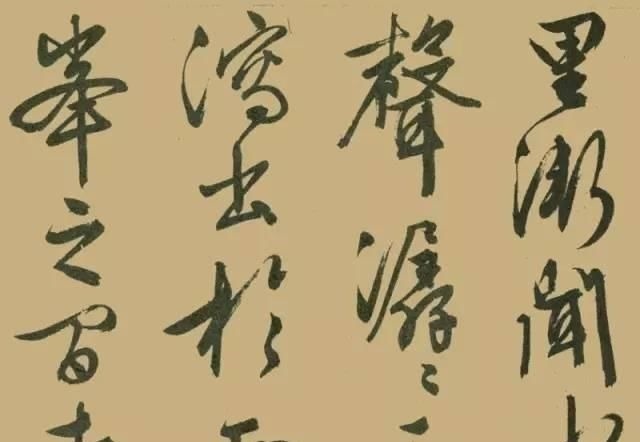 里漸聞
聲潺〻
瀉出於
峯之間